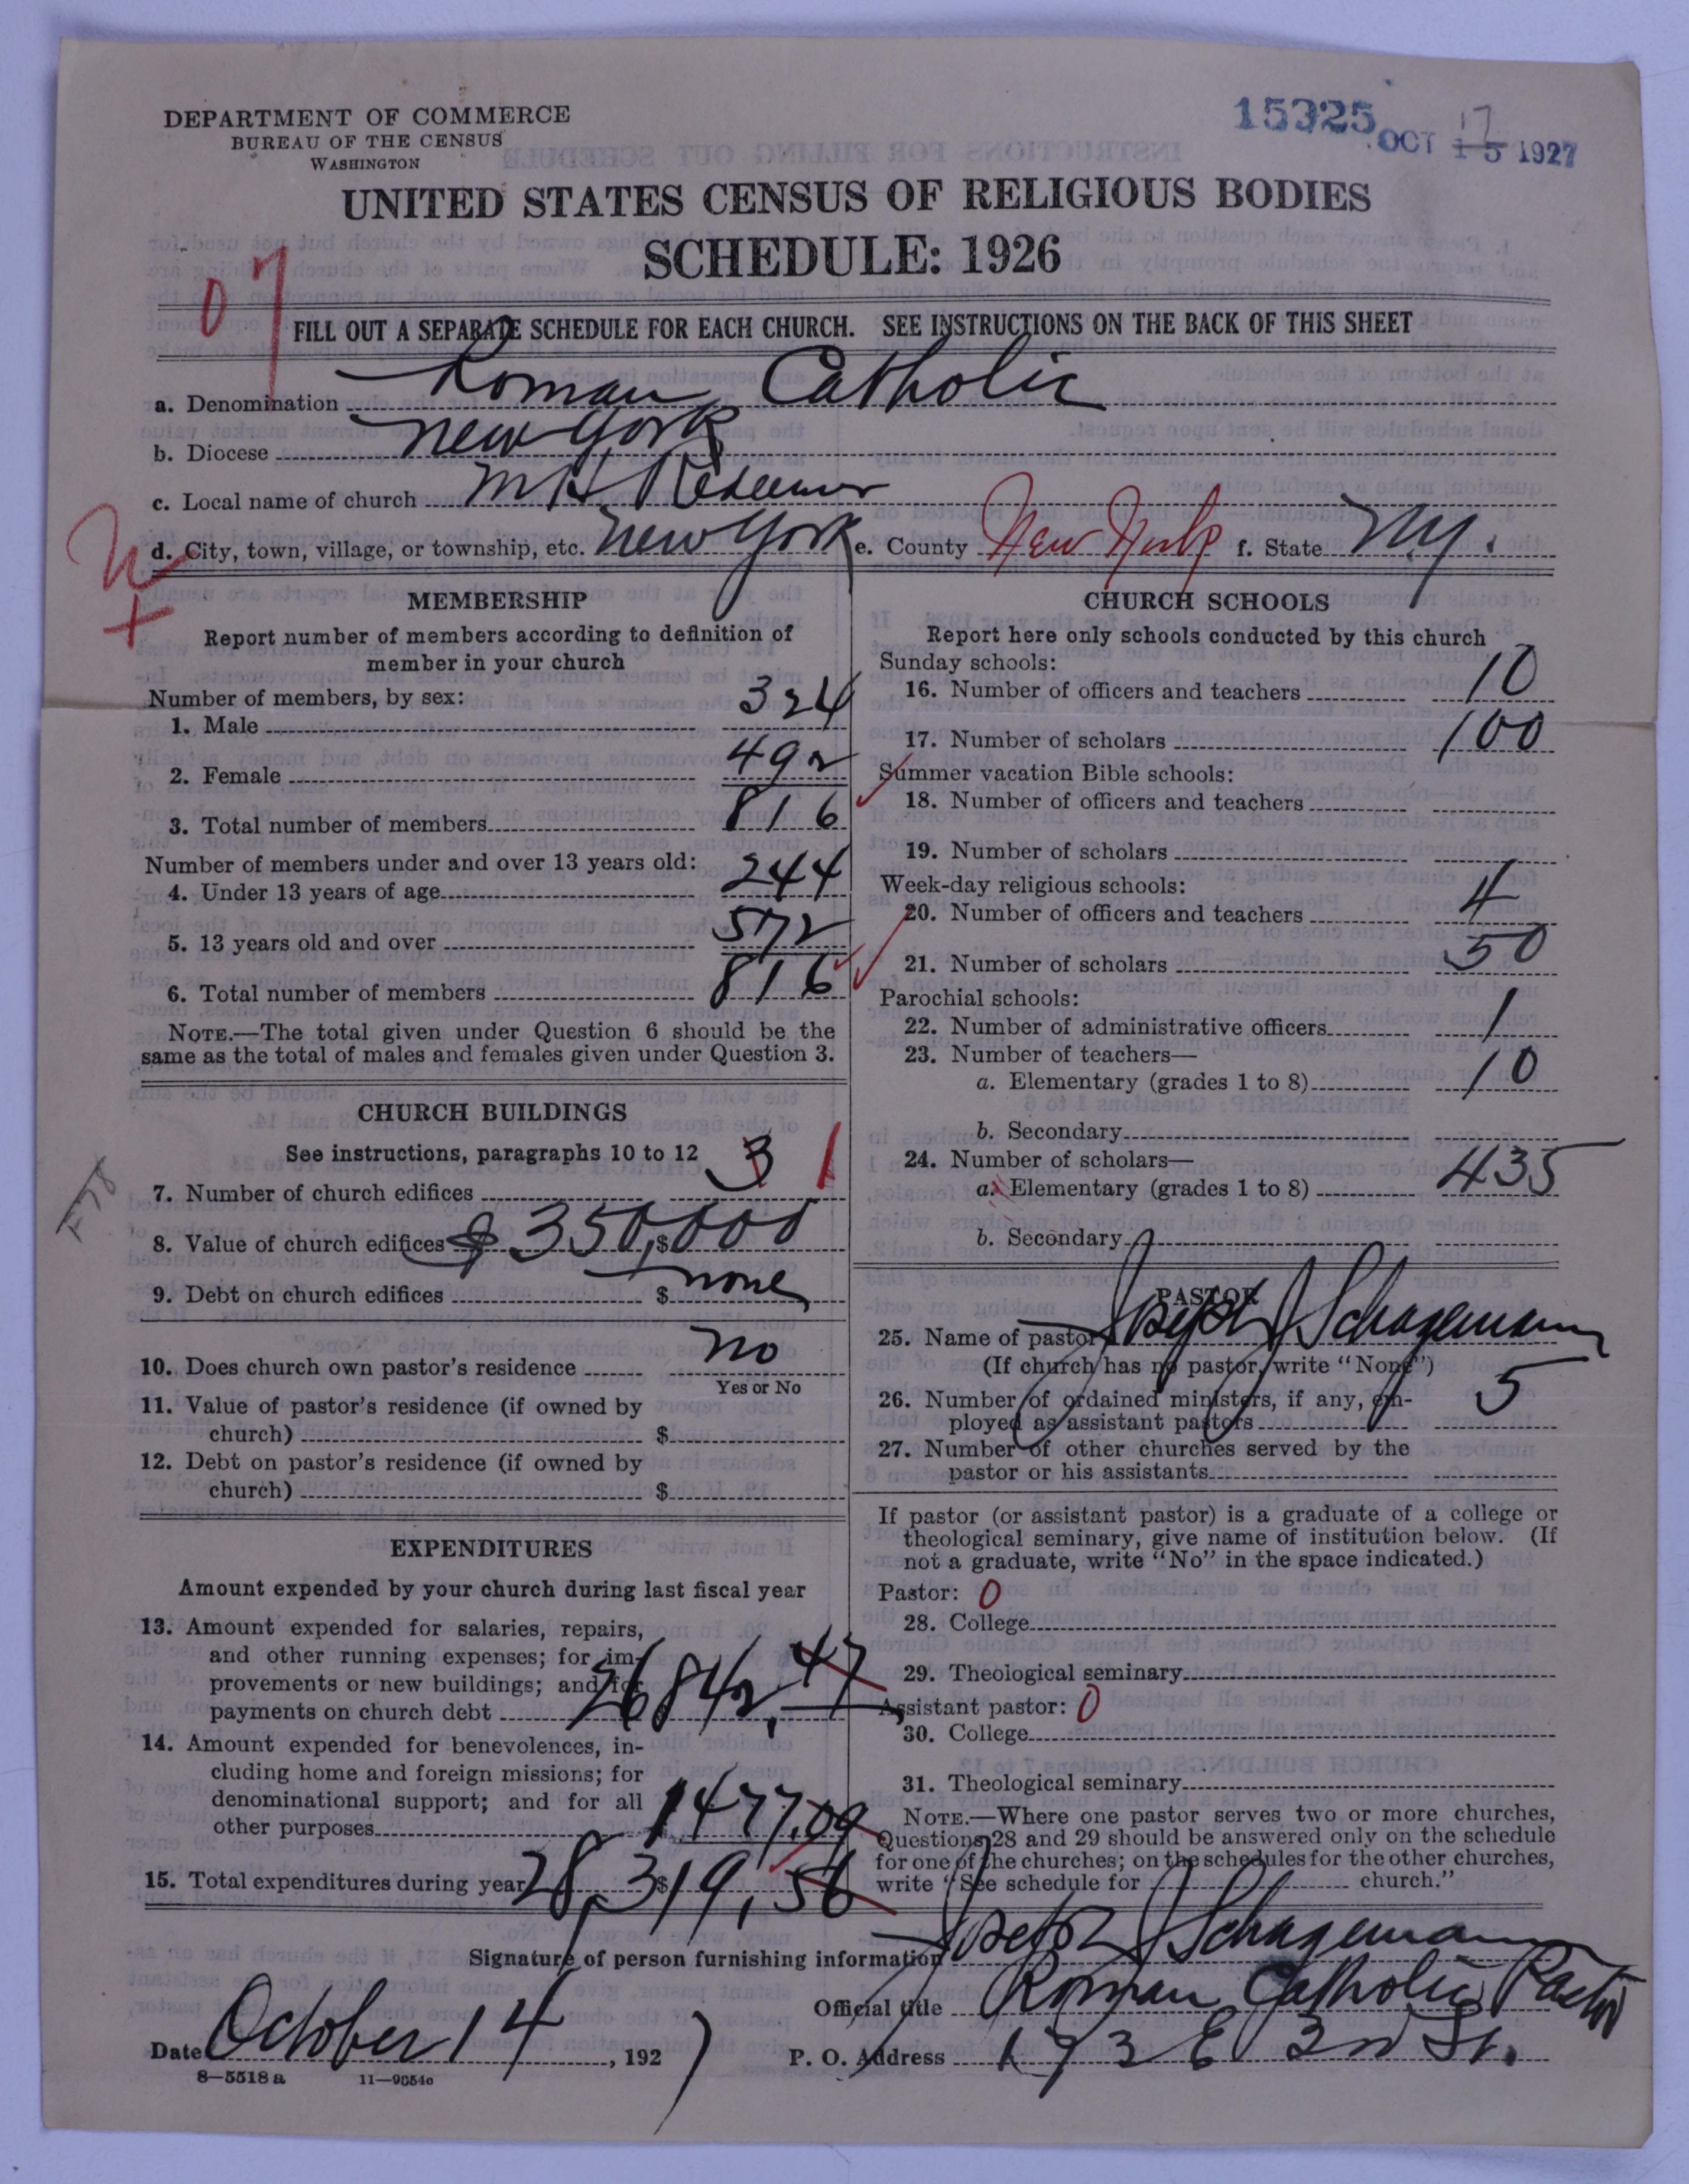 DEPARTMENT OF COMMERCE
BUREAU OF THE CENSUS
WASHINGTON
15325
OCT 15 1927
17
UNITED STATES CENSUS OF RELIGIOUS BODIES
SCHEDULE: 1926
07
FILL OUT A SEPARATE SCHEDULE FOR EACH CHURCH. SEE INSTRUCTIONS ON THE BACK OF THIS SHEET
a. Denomination Roman Catholic
b. Diocese New York
c. Local name of church Redeemer
d. City, town, village, or township, etc. New York e. County New York f. State N.Y.
MEMBERSHIP
Report number of members according to definition of
member in your church
Number of members, by sex:
1. Male 324
2. Female 492
3. Total number of members 816
Number of members under and over 13 years old:
4. Under 13 years of age 244
5. 13 years old and over 572
6. Total number of members 816
NOTE.—The total given under Question 6 should be the
same as the total of males and females given under Question 3.
CHURCH BUILDINGS
See instructions, paragraphs 10 to 12
7. Number of church edifices 3 1
8. Value of church edifices $ 350,000
9. Debt on church edifices $ none
10. Does church own pastor's residence no
Yes or No
11. Value of pastor's residence (if owned by
church) $
12. Debt on pastor's residence (if owned by
church) $
EXPENDITURES
Amount expended by your church during last fiscal year
13. Amount expended for salaries, repairs,
and other running expenses; for im-
provements or new buildings; and for
payments on church debt 26842.47
14. Amount expended for benevolences, in-
cluding home and foreign missions; for
denominational support; and for all
other purposes 1477.09
15. Total expenditures during year $ 28,319,56
CHURCH SCHOOLS
Report here only schools conducted by this church
Sunday schools:
16. Number of officers and teachers 10
17. Number of scholars 100
Summer vacation Bible schools:
18. Number of officers and teachers
19. Number of scholars
Week-day religious schools:
20. Number of officers and teachers 4
21. Number of scholars 50
Parochial schools:
22. Number of administrative officers 1
23. Number of teachers—
a. Elementary (grades 1 to 8) 10
b. Secondary
24. Number of scholars—
a. Elementary (grades 1 to 8) 435
b. Secondary
PASTOR
25. Name of pastor Joseph J Schagemann
(If church has no pastor, write "None")
26. Number of ordained ministers, if any, em-
ployed as assistant pastors 5
27. Number of other churches served by the
pastor or his assistants
If pastor (or assistant pastor) is a graduate of a college or
theological seminary, give name of institution below. (If
not a graduate, write "No" in the space indicated.)
Pastor: 0
28. College
29. Theological seminary
Assistant pastor: 0
30. College
31. Theological seminary
NOTE.—Where one pastor serves two or more churches,
Questions 28 and 29 should be answered only on the schedule
for one of the churches; on the schedules for the other churches,
write "See schedule for church."
Signature of person furnishing information Joseph J Schagemann
Official title Roman Catholic Pastor
Date October 14, 1927 P. O. Address 173 E 3rd St.
8—5518 a 11—9054c